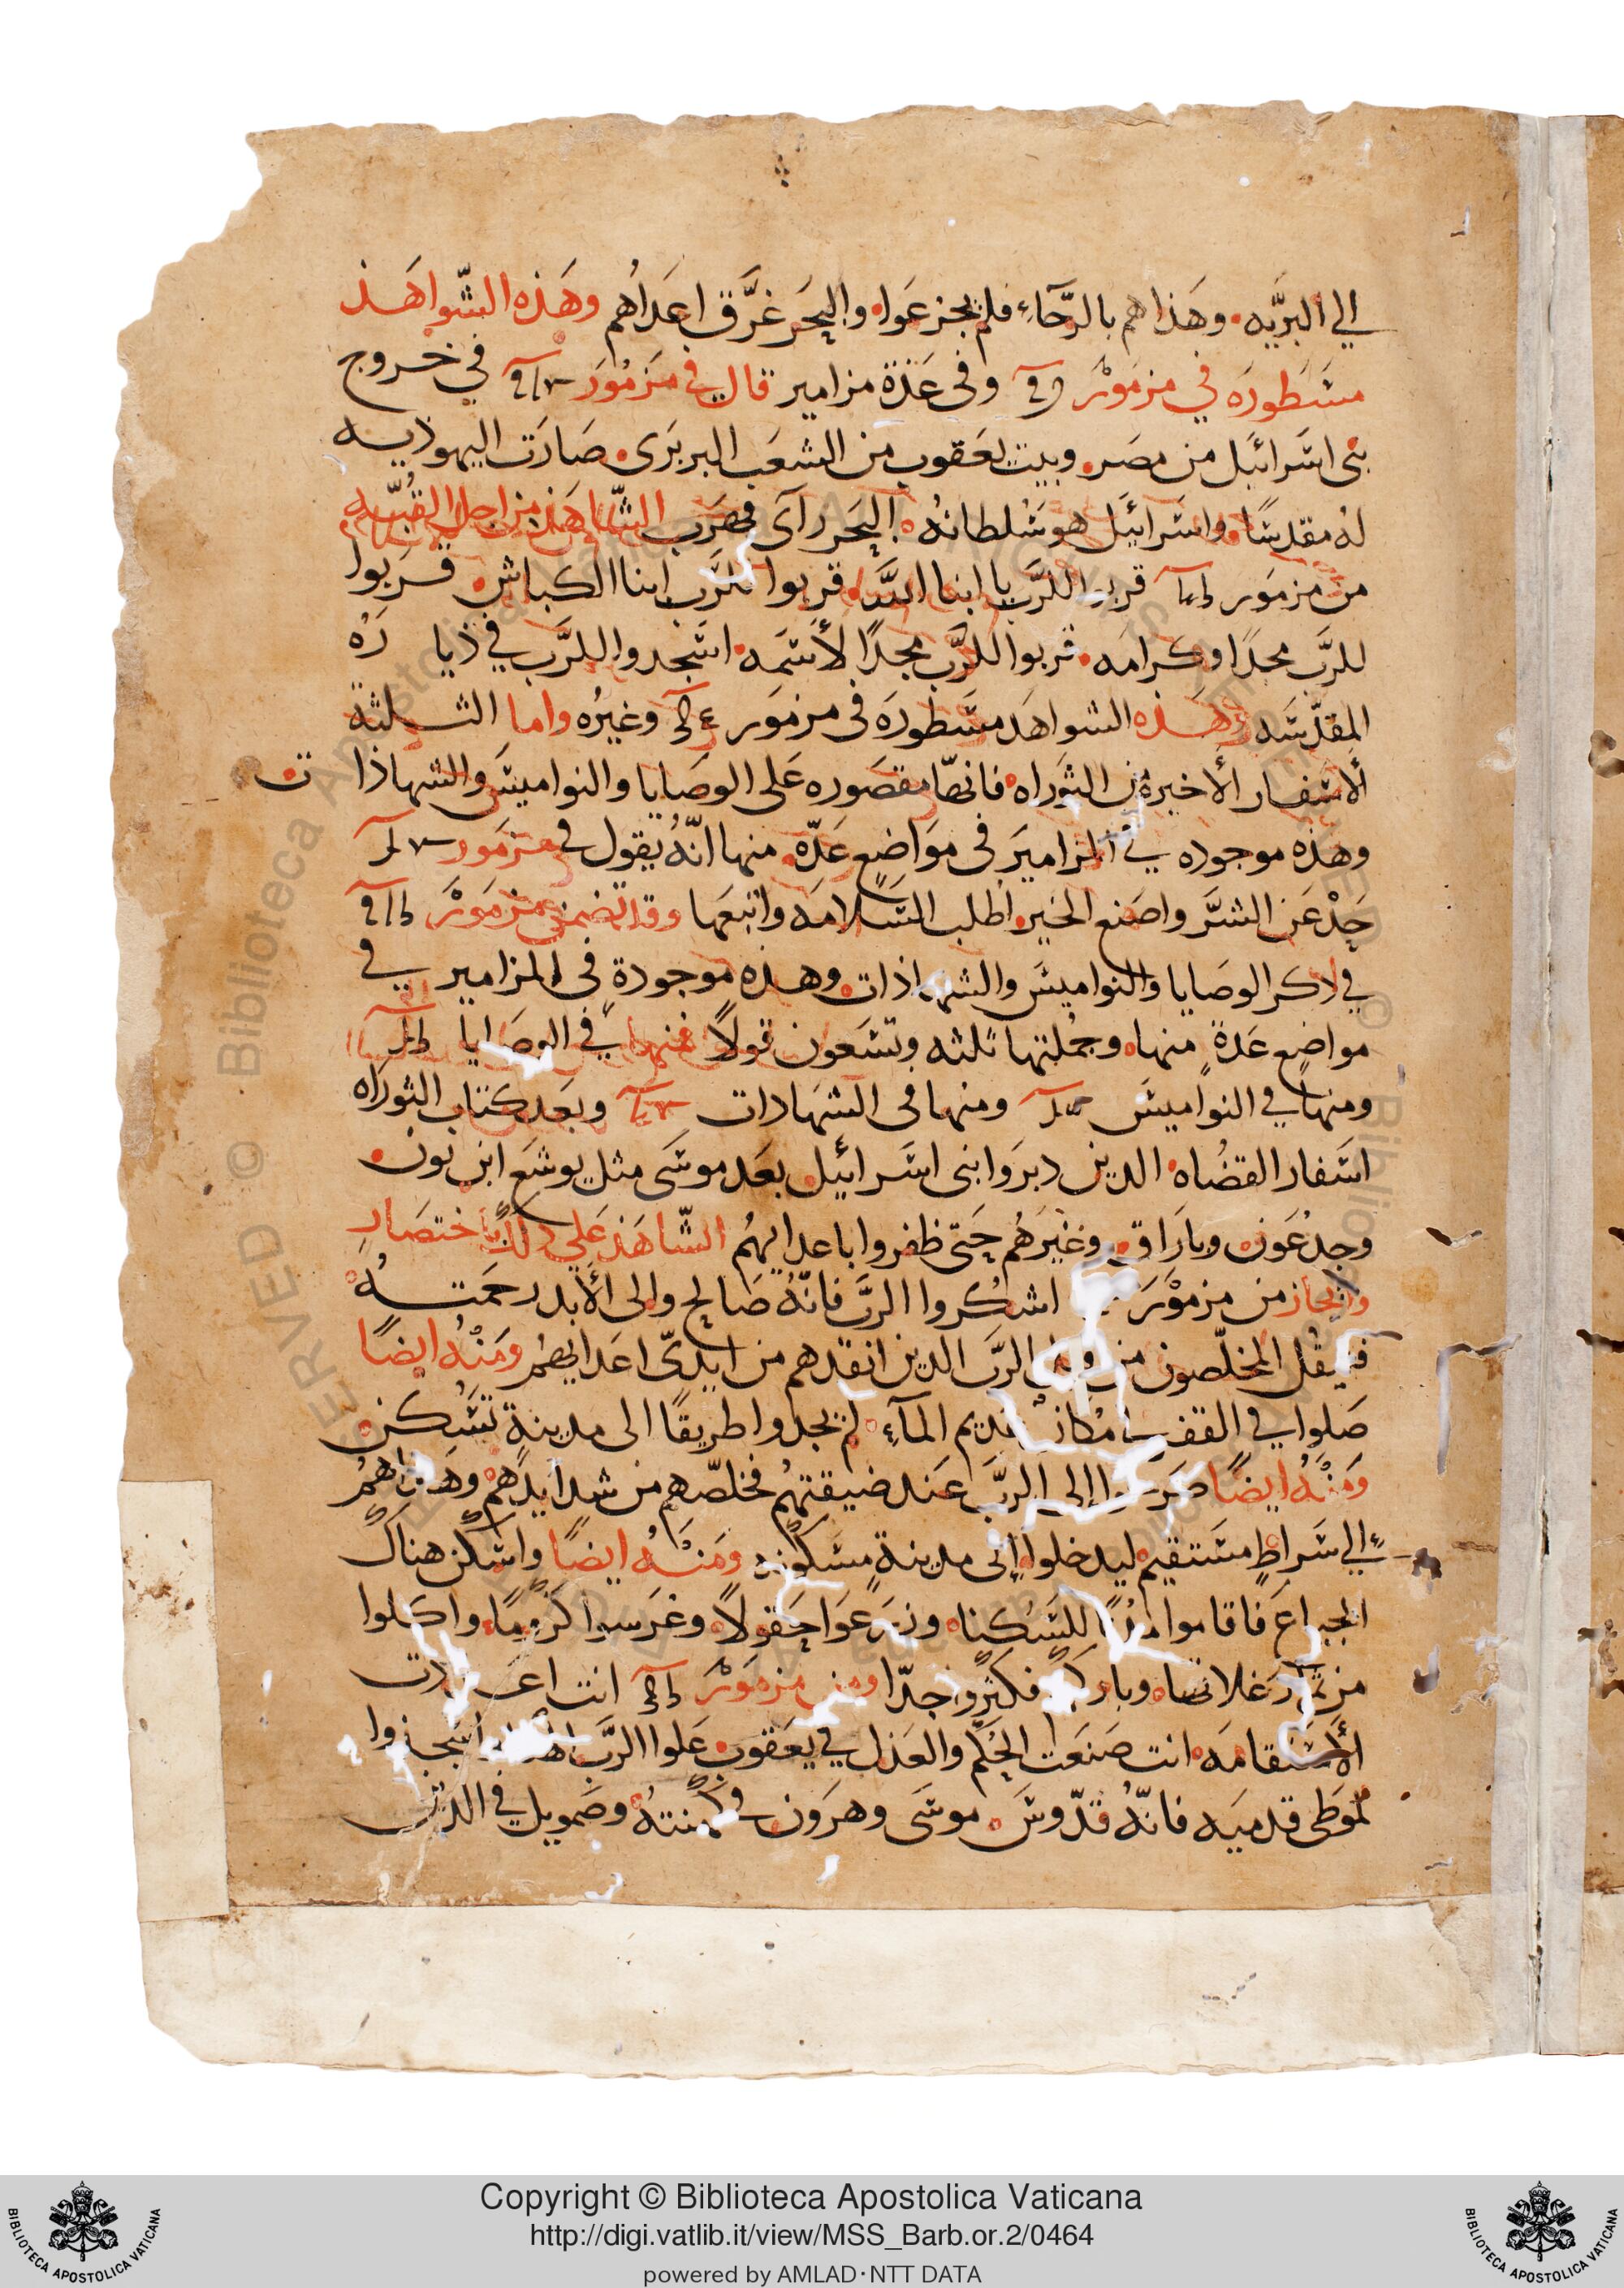 الي البريّه وهذاهم بالرّجآء فلم يجزعوا والبحر غرّق اعداهم وهذه الشواهد
مسطوره في مزمور وفى عدة مزامير قال في مزمور في خروج
بنى اسرائيل من مصر وبيت يعقوب من الشعب البربرى صارت اليهوديه
له مقدسًا واسرائيل هو سلطانه البحر رآى فهرب الشاهد من اجل القبه
من مزمور قربوا للرب يا ابنا الله قربوا للرب ابنا الكباش قربوا
للرب مجدًا وكرامه قربوا للرب مجدًا لأسمه اسجدوا للرب في ديا ره
المقدسه وهذه الشواهد مسطوره فى مزمور وغيره واما الثلثة
الأسفار الأخيرة من التوراه فانها مقصوره على الوصايا والنواميس والشهادا ت
وهذه موجوده في المزامير فى مواضع عدّه منها انّه يقول في مزمور
حد عن الشر واصنع الخير اطلب السلامه واتبعها وقد تضمن مزمور
في ذكر الوصايا والنواميس والشهادات وهذه موجودة فى المزامير في
مواضع عدة منها وجملتها ثلثه وتسعون قولاً فمنها في الوصايا
ومنها في النواميس ومنها في الشهادات وبعد كتاب التوراه
اسفار القضاه الدين دبروا بنى اسرائيل بعد موسى مثل يوشع ابن نون
وجدعون وباراق وغيرهم حتى ظفروا باعدايهم الشاهد علي ذلك باختصار
وايجاز من مزمور اشكروا الرب فانّه صالح والى الأبد رحمته
فليقل المخلّصون من الرب الدين انقدهم من ايدى اعدايهم ومنه ايضًا
ضلوا في القفر مكان عديم المآء لم يجدوا طريقًا الى مدينة تسكن
ومنه ايضًا صرخوا إلى الرب عند ضيقتهم فخلصهم من شدايدهم وهداهم
إلي سراط مستقيم ليدخلوا إلى مدينة مسكونه ومنه ايضًا واسكن هناك
الجياع فاقاموا مدنًا للسكنا وزرعوا حقولاً وغرسوا كرومًا واكلوا
من ثمر غلاتها وباركهم فكثروا جدّا ومن مزمور انت اعددت
الأستقامه انت صنعت الحكم والعدل في يعقوب علوا الرب الهنا واسجدوا
لموطى قدميه فانّه قدّوس موسى وهرون في كهنته وصمويل في الدين
Copyright © Biblioteca Apostolica Vaticana
http://digi.vatlib.it/view/MSS_Barb.or.2/0464
powered by AMLAD·NTT DATA